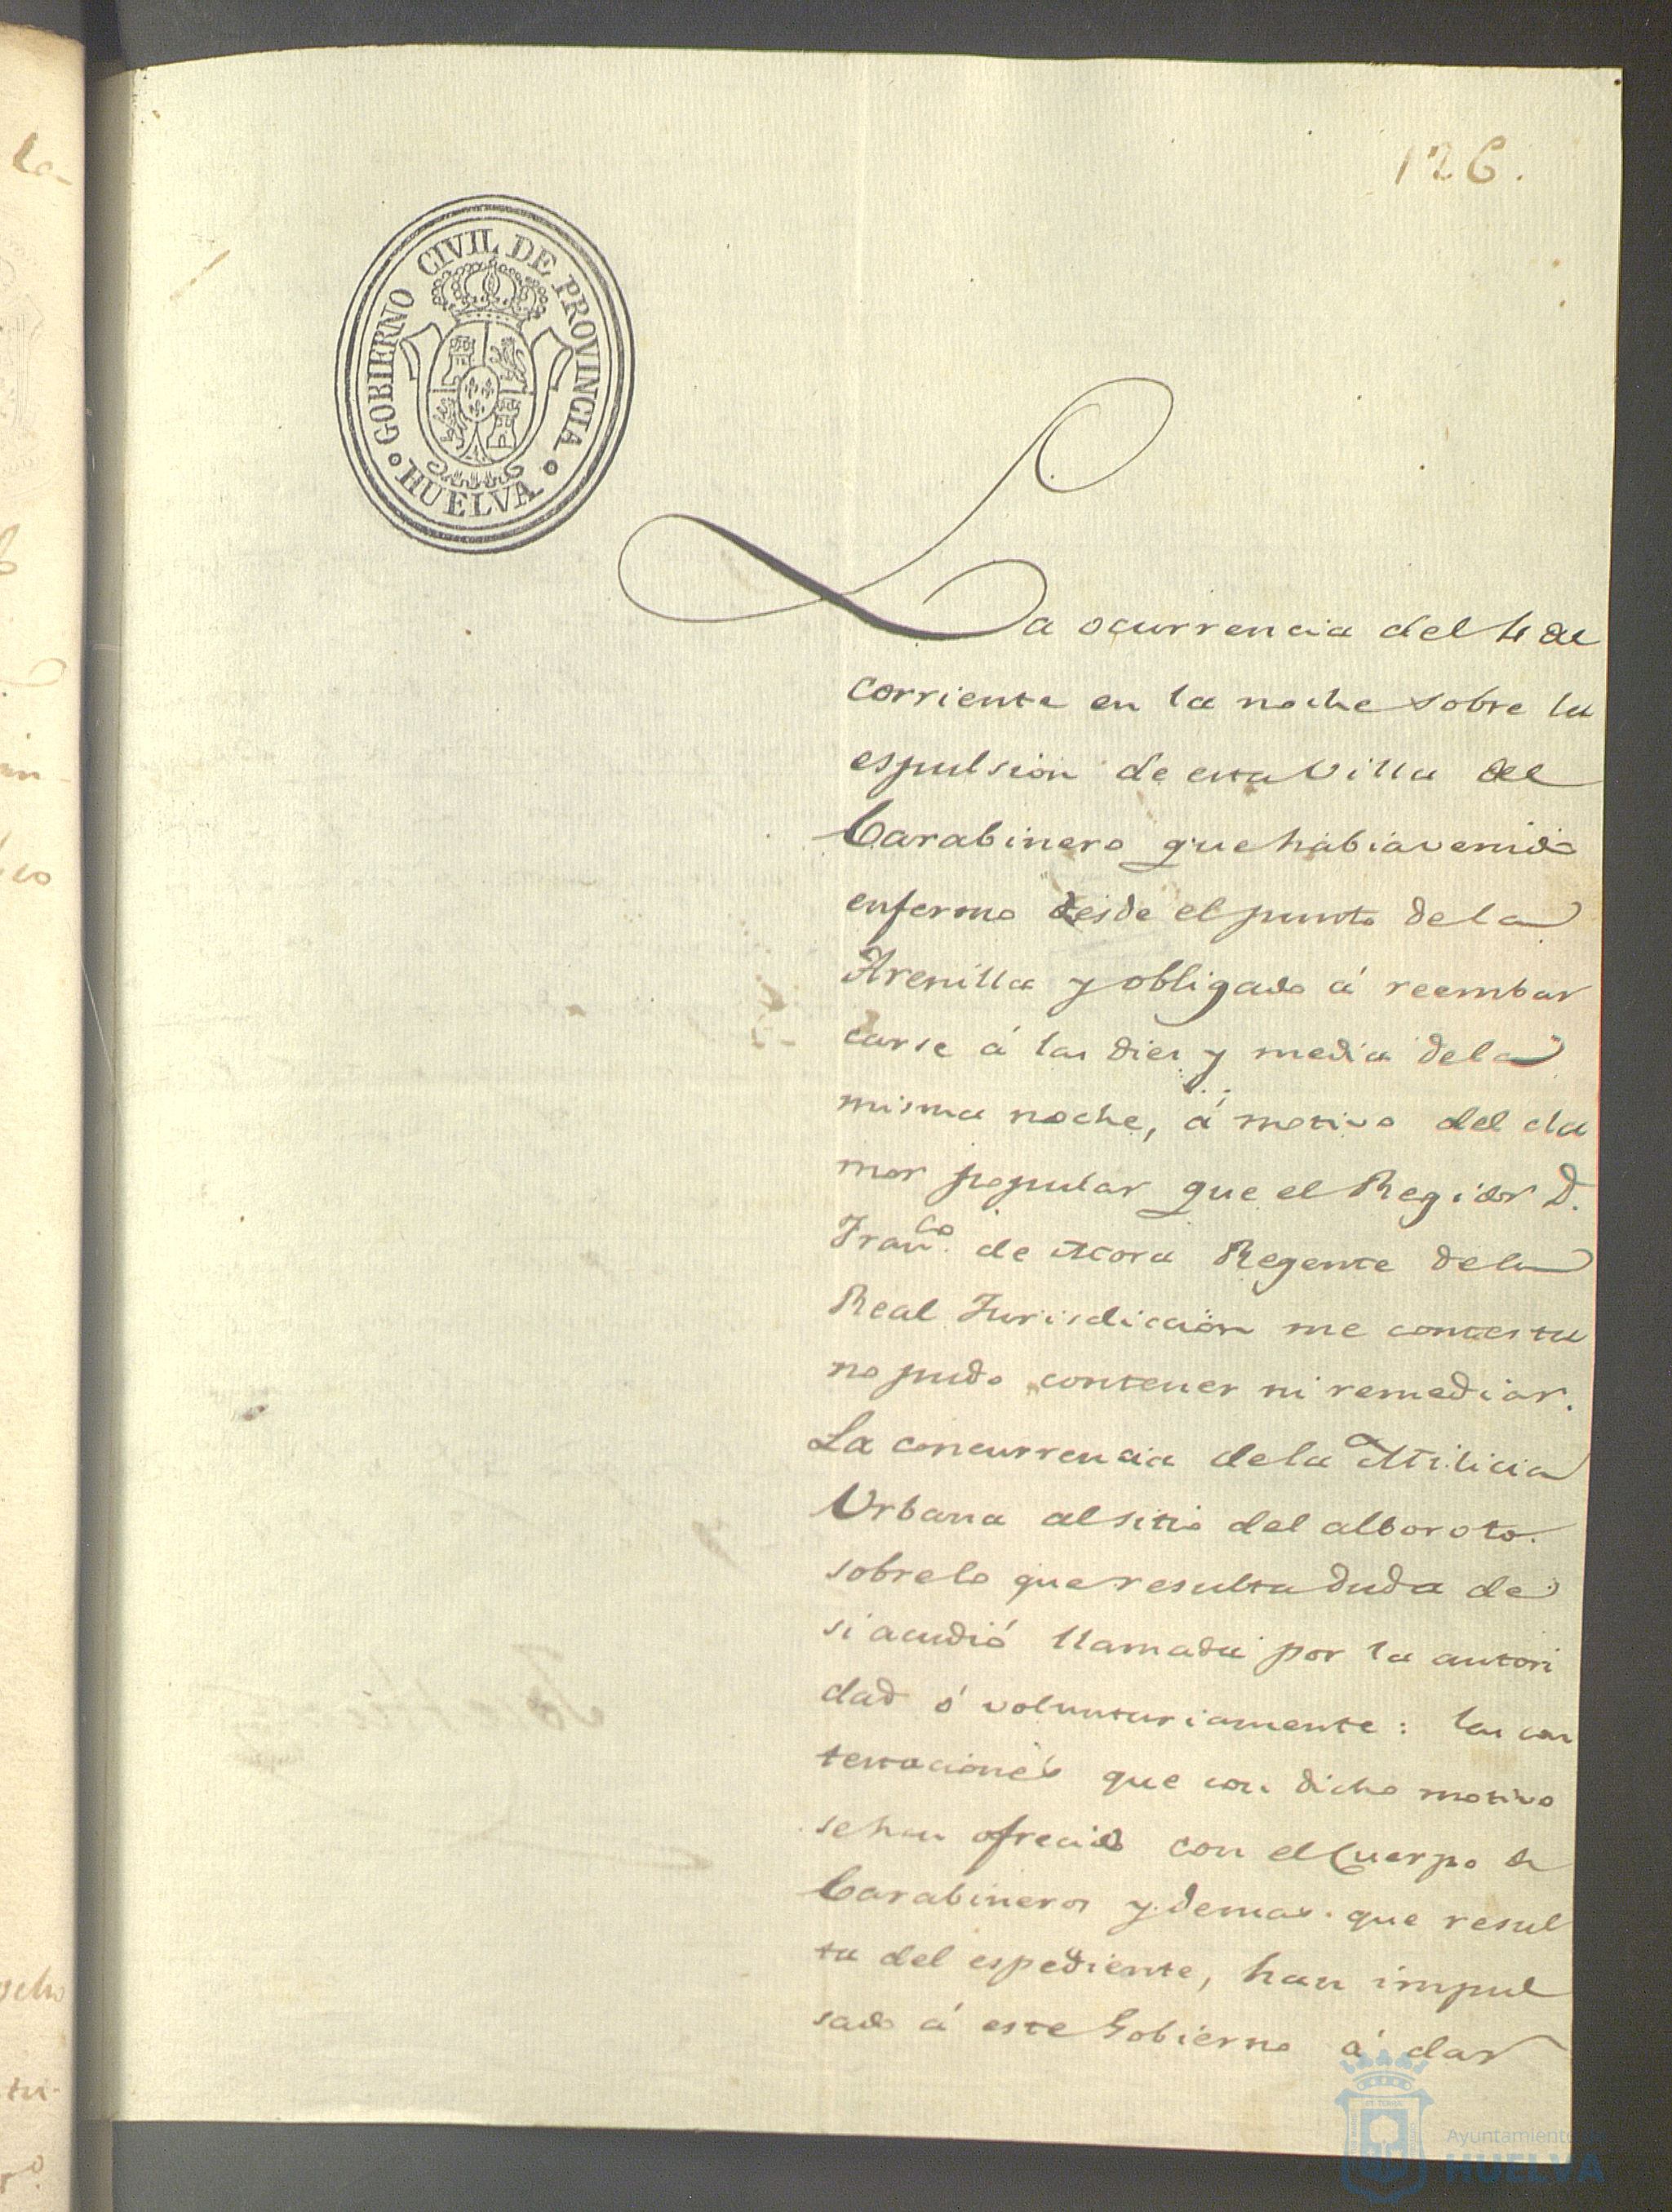 126.
GOBIERNO CIVIL DE PROVINCIA
HUELVA
La ocurrencia del 4 del
corriente en la noche sobre la
espulsion de esta Villa del
Carabinero que habia venido
enfermo desde el punto de la
Arenilla y obligado á reembar
carse á las diez y media de la
misma noche, á motivo del cla
mor popular que el Regidor D.
Franco. de Mora Regente de la
Real Jurisdiccion me contesta
no pudo contener ni remediar.
La concurrencia de la Milicia
Urbana al sitio del alboroto.
sobre lo que resulta duda de
si acudió llamada por la autori
dad ó voluntariamente: las con
testaciones que con dicho motivo
se han ofrecido con el Cuerpo de
Carabineros y demas que resul
ta del espediente, han impul
sado á este Gobierno á dar
Ayuntamiento de
HUELVA